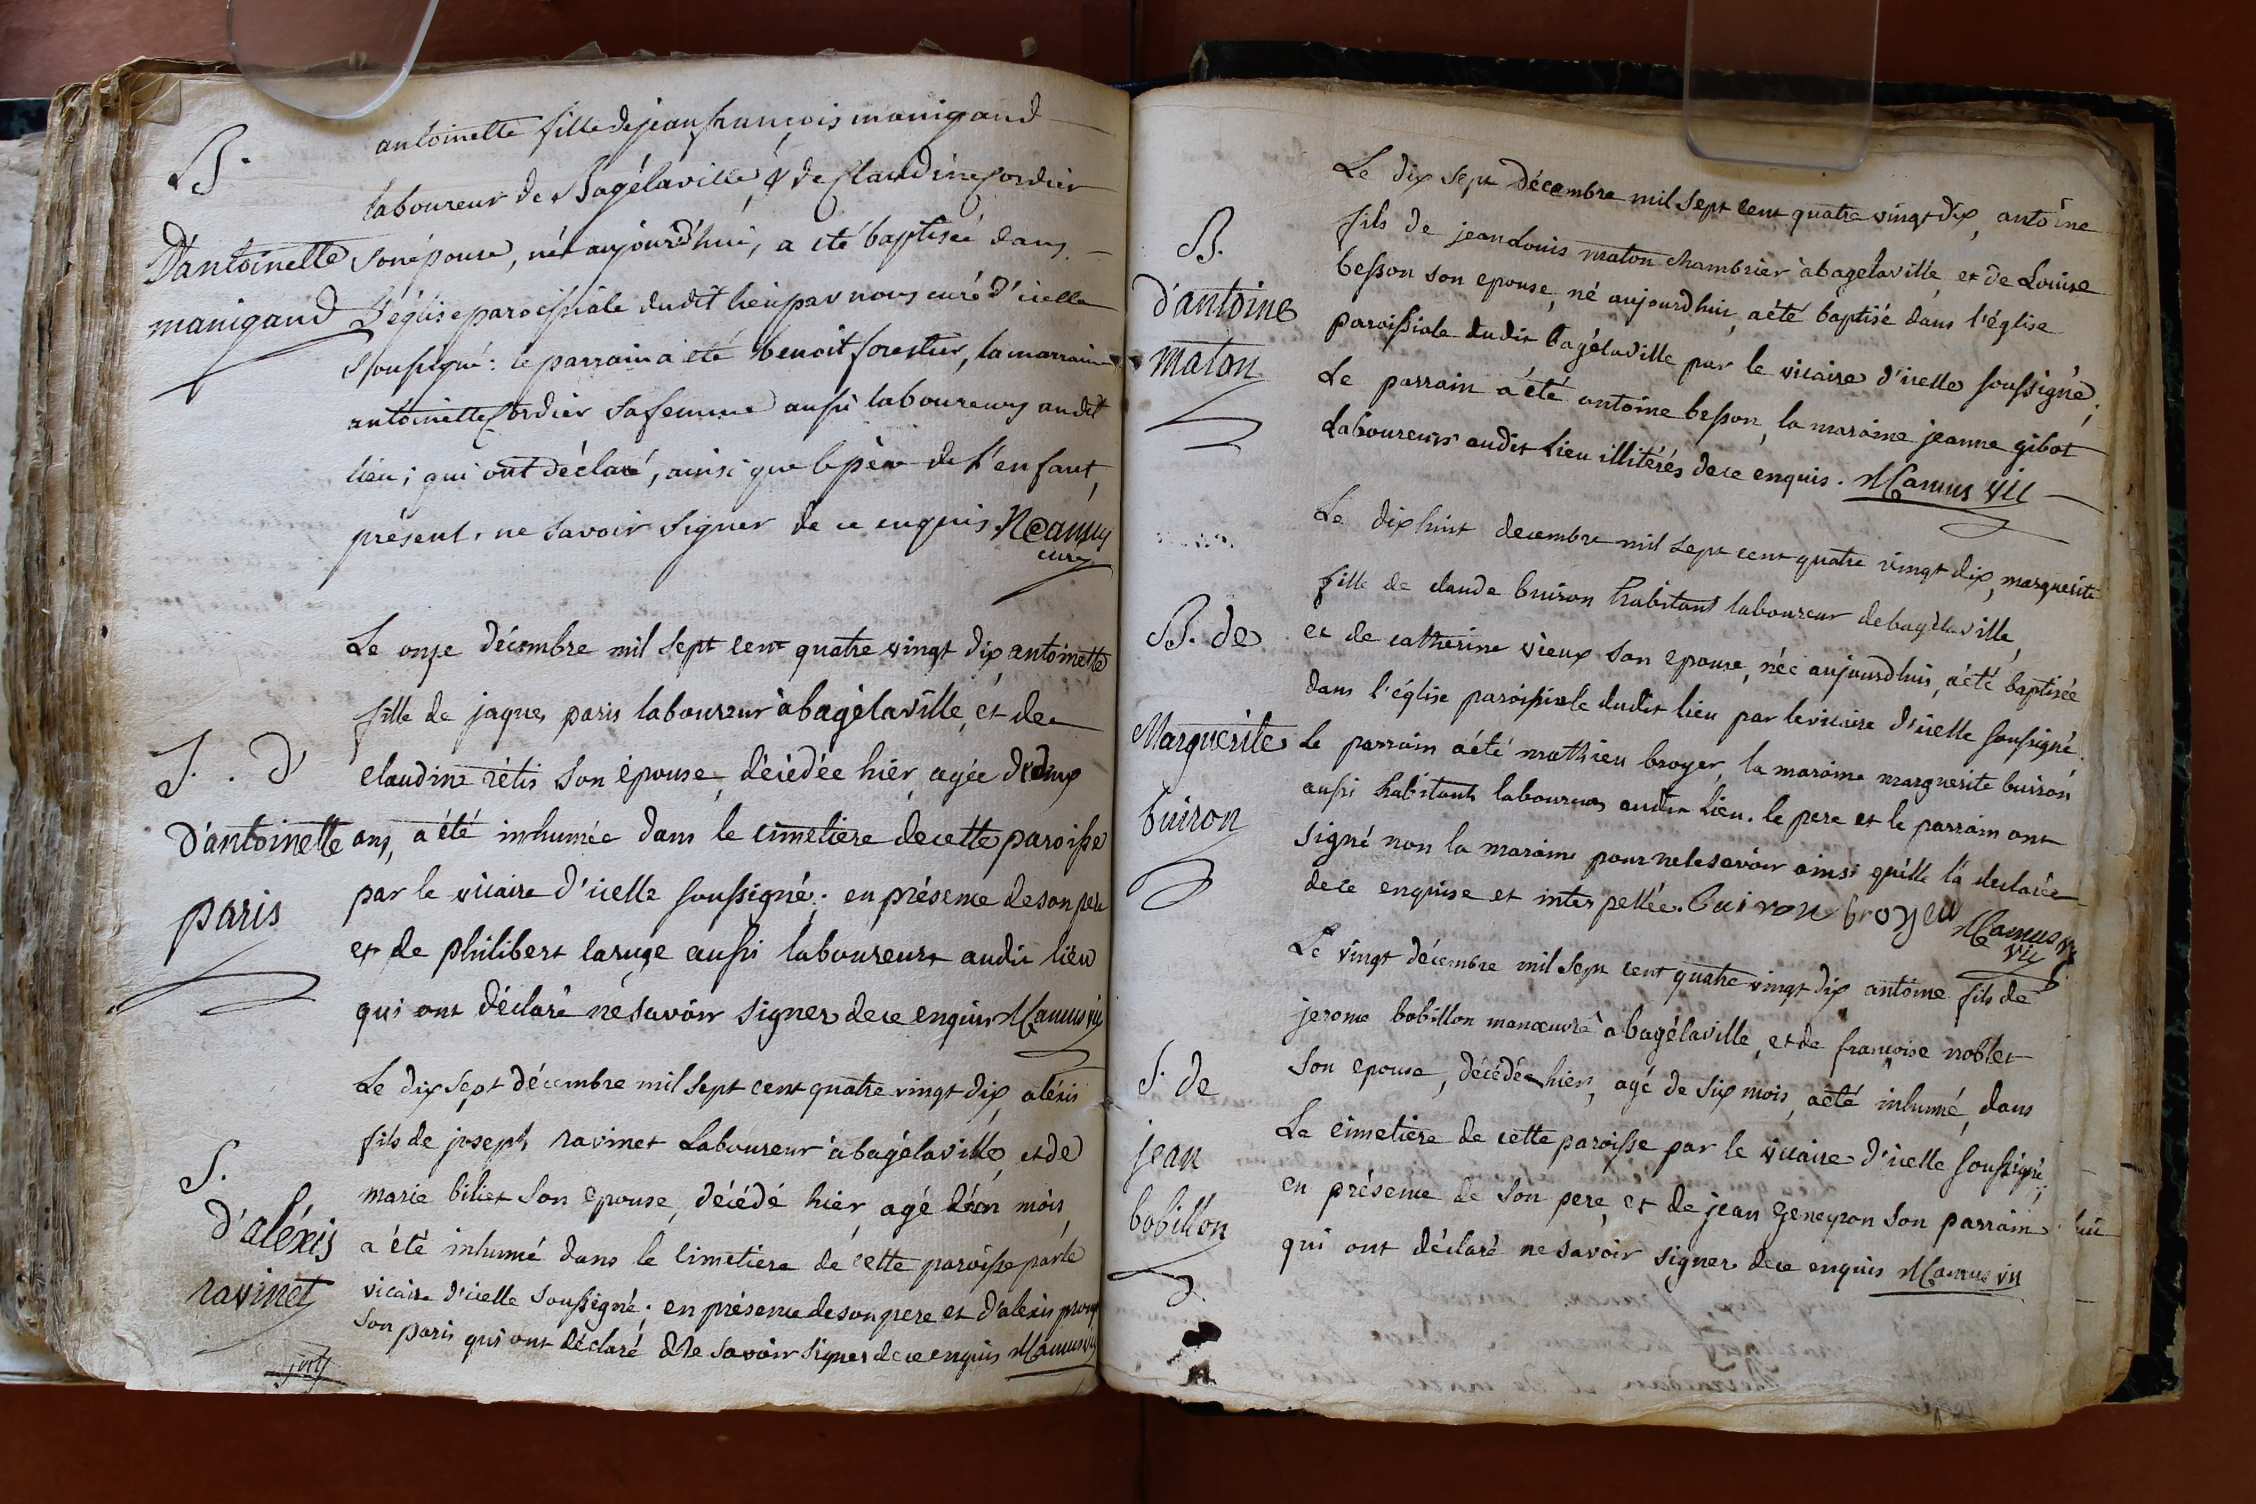 B.
D'antoinette
manigaud
antoinette fille de jean françois manigaud
laboureur de Bagélaville, & de Claudine Cordier
son épouse, née aujourd'hui, a été baptisée dans
l'église paroissiale dudit lieu par nous curé d'icelle
soussigné: le parrain a été benoit forestier, la marraine
antoinette Cordier sa femme aussi laboureurs audit
lieu; qui ont déclaré, ainsi que le père de l'enfant,
présent, ne savoir signer de ce enquis. N Camus
curé
S. d'
D'antoinette
paris
Le onze décembre mil sept cent quatre vingt dix, antoinette
fille de jaques paris laboureur à bagélaville, et de
claudine rétis son épouse, décédée hier, agée de deux
ans, a été inhumée dans le cimetiere de cette paroisse
par le vicaire d'icelle soussigné; en présence de son pere
et de philibert laruge aussi laboureurs audit lieu
qui ont déclaré ne savoir signer de ce enquis Camus vic
S.
d'aléxis
ravinet
Le dix sept décembre mil sept cent quatre vingt dix, aléxis
fils de joseph ravinet Laboureur à bagélaville, et de
marie biliet son epouse, décédé hier, agé d'un mois,
a été inhumé dans le cimetiere de cette paroisse par le
vicaire d'icelle soussigné; en présence de son pere et d'alexis
son qui ont déclaré ne savoir signer de ce enquis Camus vic
B.
d'antoine
maton
Le dix sept décembre mil sept cent quatre vingt dix, antoine
fils de jean Louis maton chambrier à bagelaville, et de Louise
besson son epouse, né aujourdhui, a été baptisé dans l'église
paroissiale dudit bagélaville par le vicaire d'icelle soussigné;
Le parrain a été antoine besson, la maraine jeanne gibot
Laboureurs audit Lieu illitérés de ce enquis. Camus vic
B. de
Marguerite
buiron
Le dix huit decembre mil sept cent quatre vingt dix, marguerite
fille de claude buiron habitant laboureur de bagélaville,
et de catherine vieux son epouse, née aujourdhui, a été baptisée
dans l'église paroissiale dudit lieu par le vicaire d'icelle soussigné.
Le parrain a été mathieu broyer, la maraine marguerite buiron
aussi habitants laboureurs audit lieu. le pere et le parrain ont
signé non la maraine pour ne le savoir ainsi qu'elle l'a declarée
de ce enquise et interpellée. Buiron broyer Camus
vic
S. de
jean
bobillon
Le vingt décembre mil sept cent quatre vingt dix antoine fils de
jerome bobillon manœuvre à bagélaville, et de françoise noblet
son epouse, décédé hier, agé de six mois, a été inhumé, dans
Le cimetiere de cette paroisse par le vicaire d'icelle soussigné;
en présence de son pere, et de jean geneyron son parrain
qui ont déclaré ne savoir signer de ce enquis Camus vic